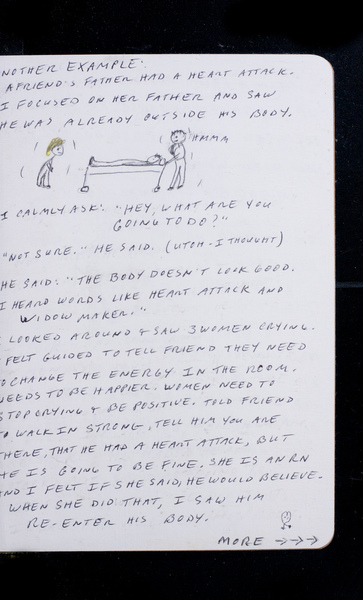 NOTHER EXAMPLE:
A FRIEND'S FATHER HAD A HEART ATTACK.
I FOCUSED ON HER FATHER AND SAW
HE WAS ALREADY OUTSIDE HIS BODY.
HMMM
I CALMLY ASK: "HEY, WHAT ARE YOU
GOING TO DO?"
"NOT SURE." HE SAID. (UTOH - I THOUGHT)
HE SAID: "THE BODY DOESN'T LOOK GOOD.
I HEARD WORDS LIKE HEART ATTACK AND
WIDOW MAKER."
I LOOKED AROUND & SAW 3 WOMEN CRYING.
FELT GUIDED TO TELL FRIEND THEY NEED
TO CHANGE THE ENERGY IN THE ROOM.
NEEDS TO BE HAPPIER. WOMEN NEED TO
STOP CRYING & BE POSITIVE. TOLD FRIEND
TO WALK IN STRONG, TELL HIM YOU ARE
THERE, THAT HE HAD A HEART ATTACK, BUT
HE IS GOING TO BE FINE. SHE IS AN RN
AND I FELT IF SHE SAID, HE WOULD BELIEVE.
WHEN SHE DID THAT, I SAW HIM
RE-ENTER HIS BODY.
MORE →→→